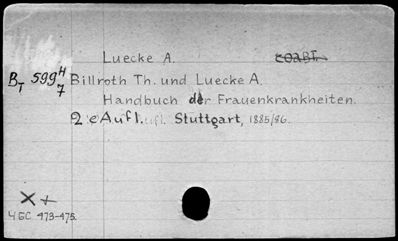 Luecke A. соавт.
Вт 599 H/7 Billroth Th. und Luecke A.
Handbuch der Frauenkrankheiten.
2e Aufl. Stuttgart, 1885/86.
X +
ЧБС 473-475.